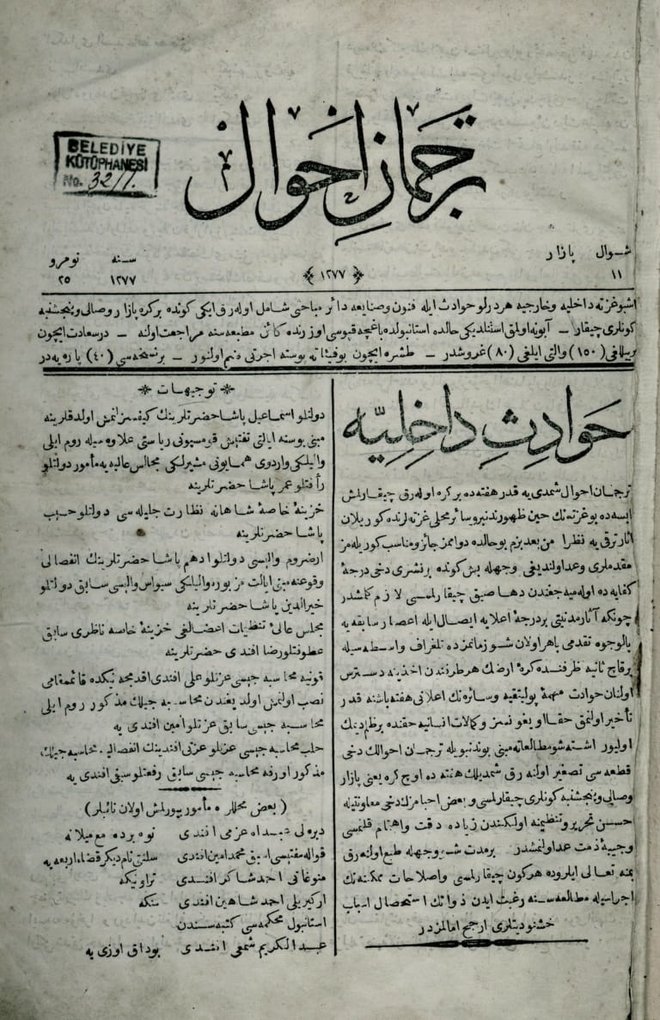 BELEDİYE
KÜTÜPHANESİ
No. 32/1.
ترجمان احوال
شوال پازار
١١
﴿ ١٢٧٧ ﴾
سنه نومرو
١٢٧٧ ٢٥
اشبو غزته داخلیه و خارجیه هر درلو حوادث ایله فنون و صنایعه دائر مباحثی شامل اوله رق ایکی کونده بر کره پازار و صالی و پنجشنبه
کونلری چیقار — آبونه اولمق استنلدیکی حالده استانبولده باغچه قپوسی اوزرنده کائن مطبعه سنه مراجعت اولنه — در سعادت ایچون
(١٥٠) والتی ایلغی (٨٠) غروشدر — طشره ایچون بوفیئاته پوسته اجرتی ضم اولنور — بر نسخه سی (٤٠) پاره یه در
حوادث داخلیه
ترجمان احوال شمدی یه قدر هفته ده بر کره اوله رق چیقارلمش
ایسه ده بو غزته نك حین ظهورندنبرو سائر محلی غزته لرنده کوریلان
آثار ترقی یه نظرا من بعد بزم بو حالده دوامز جائز و مناسب کوریله مز
مقدملری وعد اولندیغی وجهله بش کونده بر نشری دخی درجهٔ
کفایه ده اوله میه جغندن دها صیق چیقارلمسی لازم کلمشدر
چونکه آثار مدنیتی بو درجهٔ اعلایه ایصال ایله اعصار سابقه یه
بالوجوه تقدمی باهر اولان شو زمانمزده تلغراف واسطه سیله
بر قاچ ثانیه ظرفنده کرهٔ ارضك هر طرفندن اخذینه دسترس
اولنان حوادث مهمهٔ پولیتیقیه و سائره نك اعلانی هفته باشنه قدر
تأخیر اولنمق حقا اویغونمز و کمالات انسانیه حقنده بر ظلم دیمك
اولیور اشته شو مطالعه مبنی بوندنبویله ترجمان احوالك دخی
قطعه سی تصغیر اولنه رق شمدیلك هفته ده اوچ کره یعنی پازار
وصالی و پنجشنبه کونلری چیقارلمسی و بعض احبامزك دخی معاونتیله
احسن تحریر و تنظیمنه اولکندن زیاده دقت و اهتمام قلنمسی
وجیبهٔ ذمت عد اولنمشدر بر مدت شو وجهله طبع اولنه رق
بمنه تعالی ایلروده هر کون چیقارلمسی و اصلاحات ممکنه نك
اجراسیله مطالعه سنه رغبت ایدن ذواتك استحصال اسباب
خشنودیتلری ارجح آمالمزدر
❈ توجیهات ❈
دولتلو اسماعیل پاشا حضرتلرینك کیفسزلنمش اولدقلرینه
مبنی بوسنه ایالتی تفتیش قومسیونی ریاستی علاوه سیله روم ایلی
والیلکی و اردوی همایونی مشیرلکی مجالس عالیه یه مأمور دولتلو
رأفتلو عمر پاشا حضرتلرینه
خزینهٔ خاصهٔ شاهانه نظارت جلیله سی دولتلو حسیب
پاشا حضرتلرینه
ارضروم والیسی دولتلو ادهم پاشا حضرتلرینك انفصالی
وقوعنه مبنی ایالت مزبوره والیلکی سیواس والیسی سابق دولتلو
خیرالدین پاشا حضرتلرینه
مجلس عالیٔ تنظیمات اعضالغی خزینهٔ خاصه ناظری سابق
عطوفتلو رضا افندی حضرتلرینه
قونیه محاسبه جیسی عزتلو علی افندی اقدمجه نیکده قائممقامی
نصب اولنمش اولدیغندن محاسبه جیلك مذکور روم ایلی
محاسبه جیسی سابق عزتلو امین افندی یه
حلب محاسبه جیسی عزتلو عزتی افندینك انفصالیله محاسبه جیلك
مذکور اورفه محاسبه جیسی سابق رفعتلو سبقی افندی یه
( بعض محللره مأمور بیورلمش اولان نائبلر )
دیره لی عبداه عزمی افندی نوه برده مع میلانه
قواله مفتیسی اسبق محمد امین افندی
منوغاتی احمد شاکر افندی تراونیکه
ارکریلی احمد شاهین افندی
استانبول محکمه سی کتبه سندن
عبدالکریم شمعی افندی بوداق اوزی یه